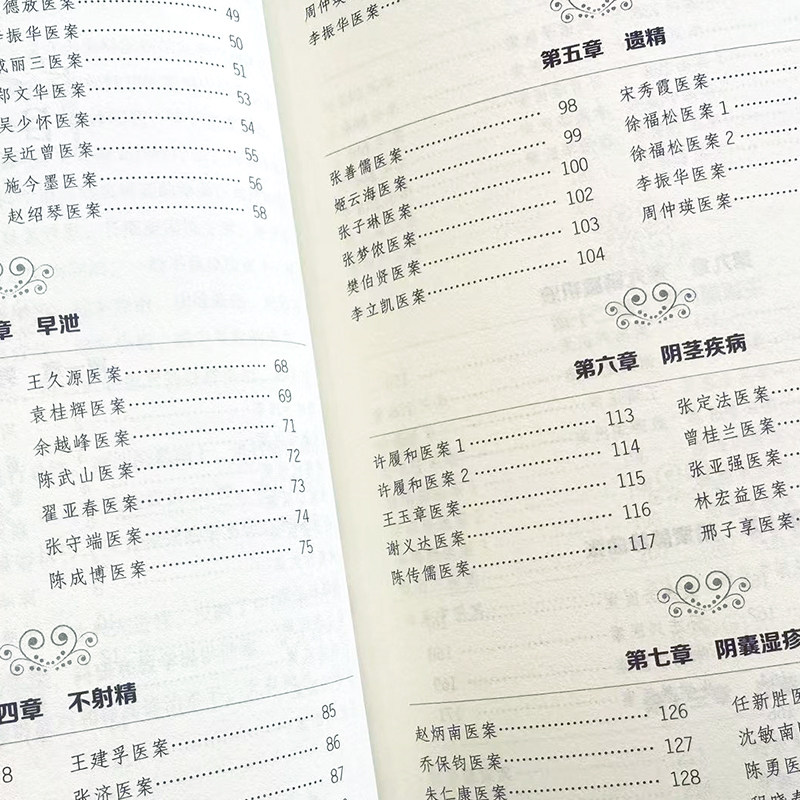 德放医案 49
李振华医案 50
戚丽三医案 51
郑文华医案 53
吴少怀医案 54
吴近曾医案 55
施今墨医案 56
赵绍琴医案 58
章 早泄
王久源医案 68
袁桂辉医案 69
余越峰医案 71
陈武山医案 72
翟亚春医案 73
张守端医案 74
陈成博医案 75
四章 不射精
8
王建孚医案 85
张济医案 86
87
周仲瑛医案
李振华医案
第五章 遗精
张善儒医案 98
姬云海医案 99
张子琳医案 100
张梦侬医案 102
樊伯贤医案 103
李立凯医案 104
宋秀霞医案
徐福松医案 1
徐福松医案 2
李振华医案
周仲瑛医案
第六章 阴茎疾病
许履和医案 1 113
许履和医案 2 114
王玉章医案 115
谢义达医案 116
陈传儒医案 117
张定法医案
曾桂兰医案
张亚强医案
林宏益医案
邢子享医案
第七章 阴囊湿疹
赵炳南医案 126
乔保钧医案 127
朱仁康医案 128
任新胜医
沈敏南医
陈勇医案